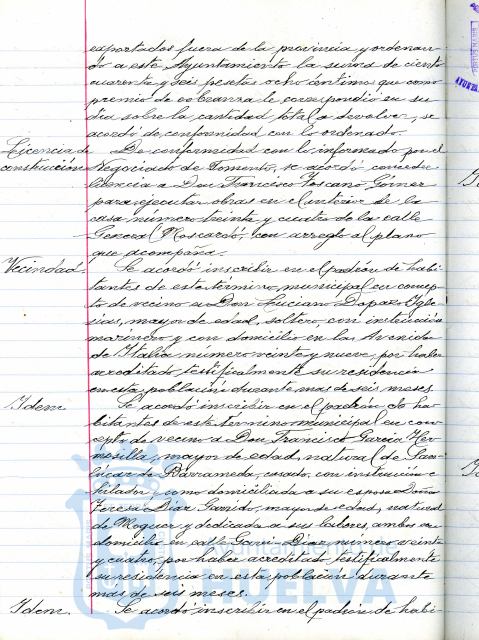 exportados fuera de la provincia y ordenan-
do a este Ayuntamiento la suma de ciento
cuarenta y seis pesetas ocho céntimos que como
premio de cobranza le correspondió en su
dia sobre la cantidad total a devolver, se
acordó de conformidad con lo ordenado.
Licencia de construcción
De conformidad con lo informado por el
Negociado de Fomento, se acordó conceder
licencia a Don Francisco Toscano Gómez
para ejecutar obras en el interior de la
casa número treinta y cuatro de la calle
General Moscardó, con arreglo al plano
que acompaña.
Vecindad.
Se acordó inscribir en el padrón de habi-
tantes de este término municipal en concep-
to de vecino a Don Luciano Dapazo Igle-
sias, mayor de edad, soltero, con instrucción
marinero y con domicilio en las Avenida
de Italia número veinte y nueve, por haber
acreditado testificalmente su residencia
en esta población durante mas de seis meses.
Idem.
Se acordó inscribir en el padrón de ha-
bitantes de este termino municipal en con-
cepto de vecino a Don Francisco García Her-
mosilla, mayor de edad, natural de San-
lúcar de Barrameda, casado, con instrucción e
hilador y como domiciliada a su esposa Doña
Teresa Díaz Garrido, mayor de edad, natural
de Moguer y dedicada a sus labores, ambos con
domicilio en calle Garci-Díaz, número veinte
y cuatro, por haber acreditado testificalmente
su residencia en esta población durante
más de seis meses.
Idem.
Se acordó inscribir en el padrón de habi-
Ayuntamiento de
HUELVA